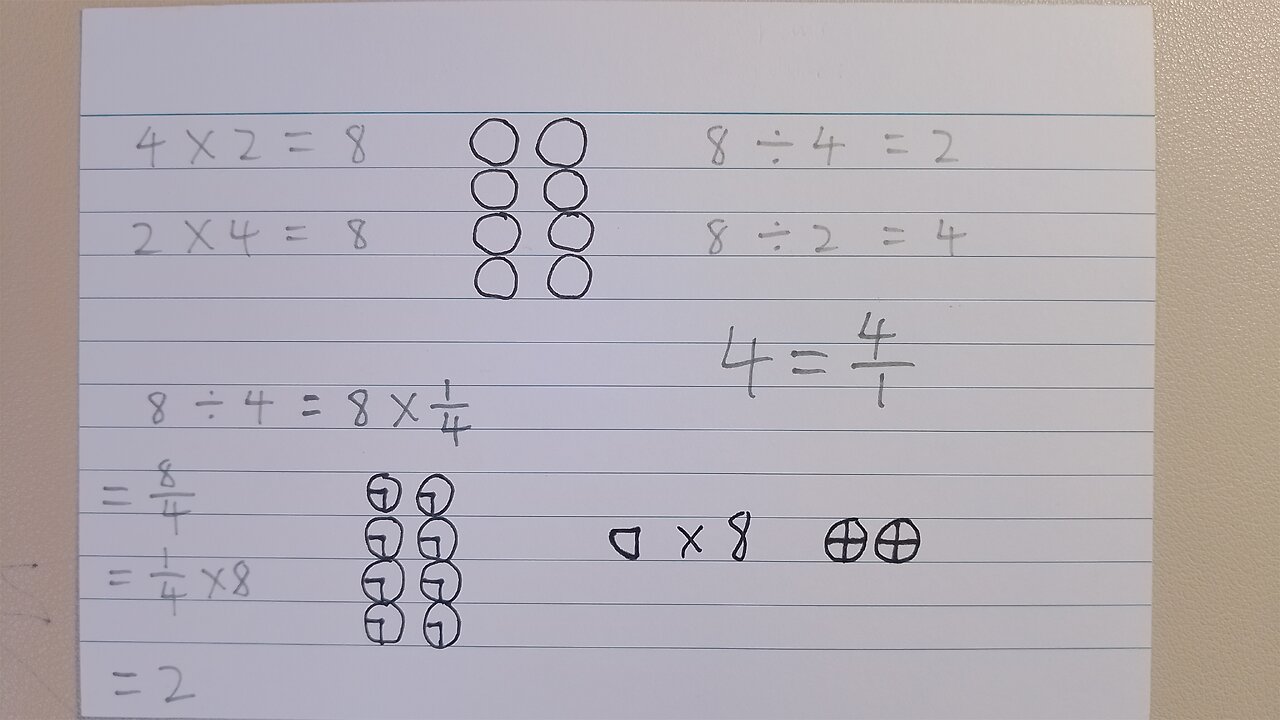 4 × 2 = 8
8 ÷ 4 = 2
2 × 4 = 8
8 ÷ 2 = 4
4 = 4/1
8 ÷ 4 = 8 × 1/4
= 8/4
× 8
= 1/4 × 8
= 2